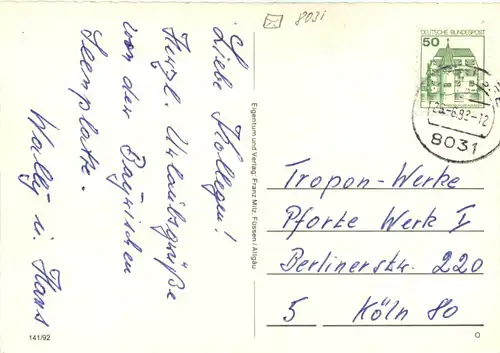 8031
DEUTSCHE BUNDESPOST
50
25.-6.83-12
8031
Liebe Kollegen!
Herzl. Urlaubsgrüße
von der Bayrischen
Seenplatte.
Wally u. Hans
Eigentum und Verlag: Franz Milz, Füssen/Allgäu
Tropon-Werke
Pforte Werk I
Berlinerstr. 220
5 Köln 80
141/92
O